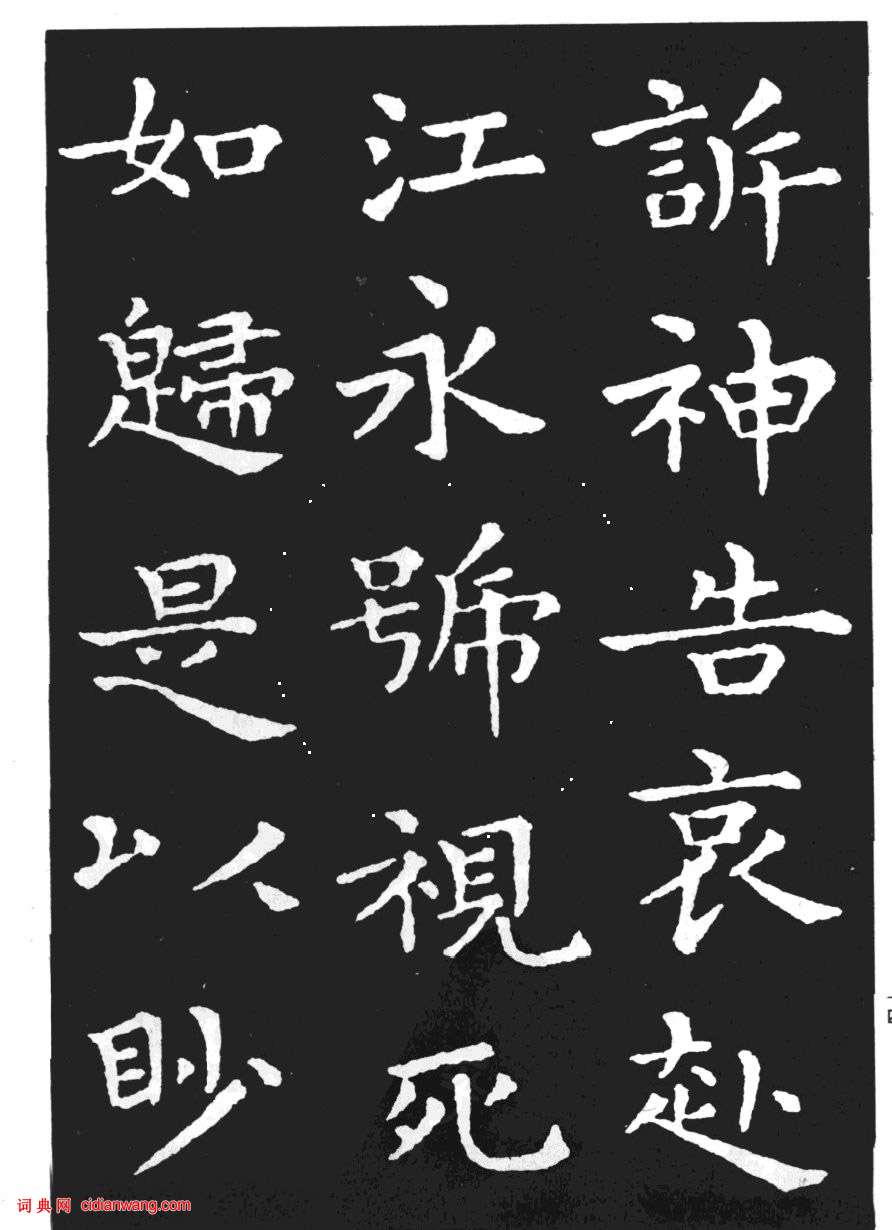 訴神告哀赴
江永號視死
如歸是以眇
词典网 cidianwang.com